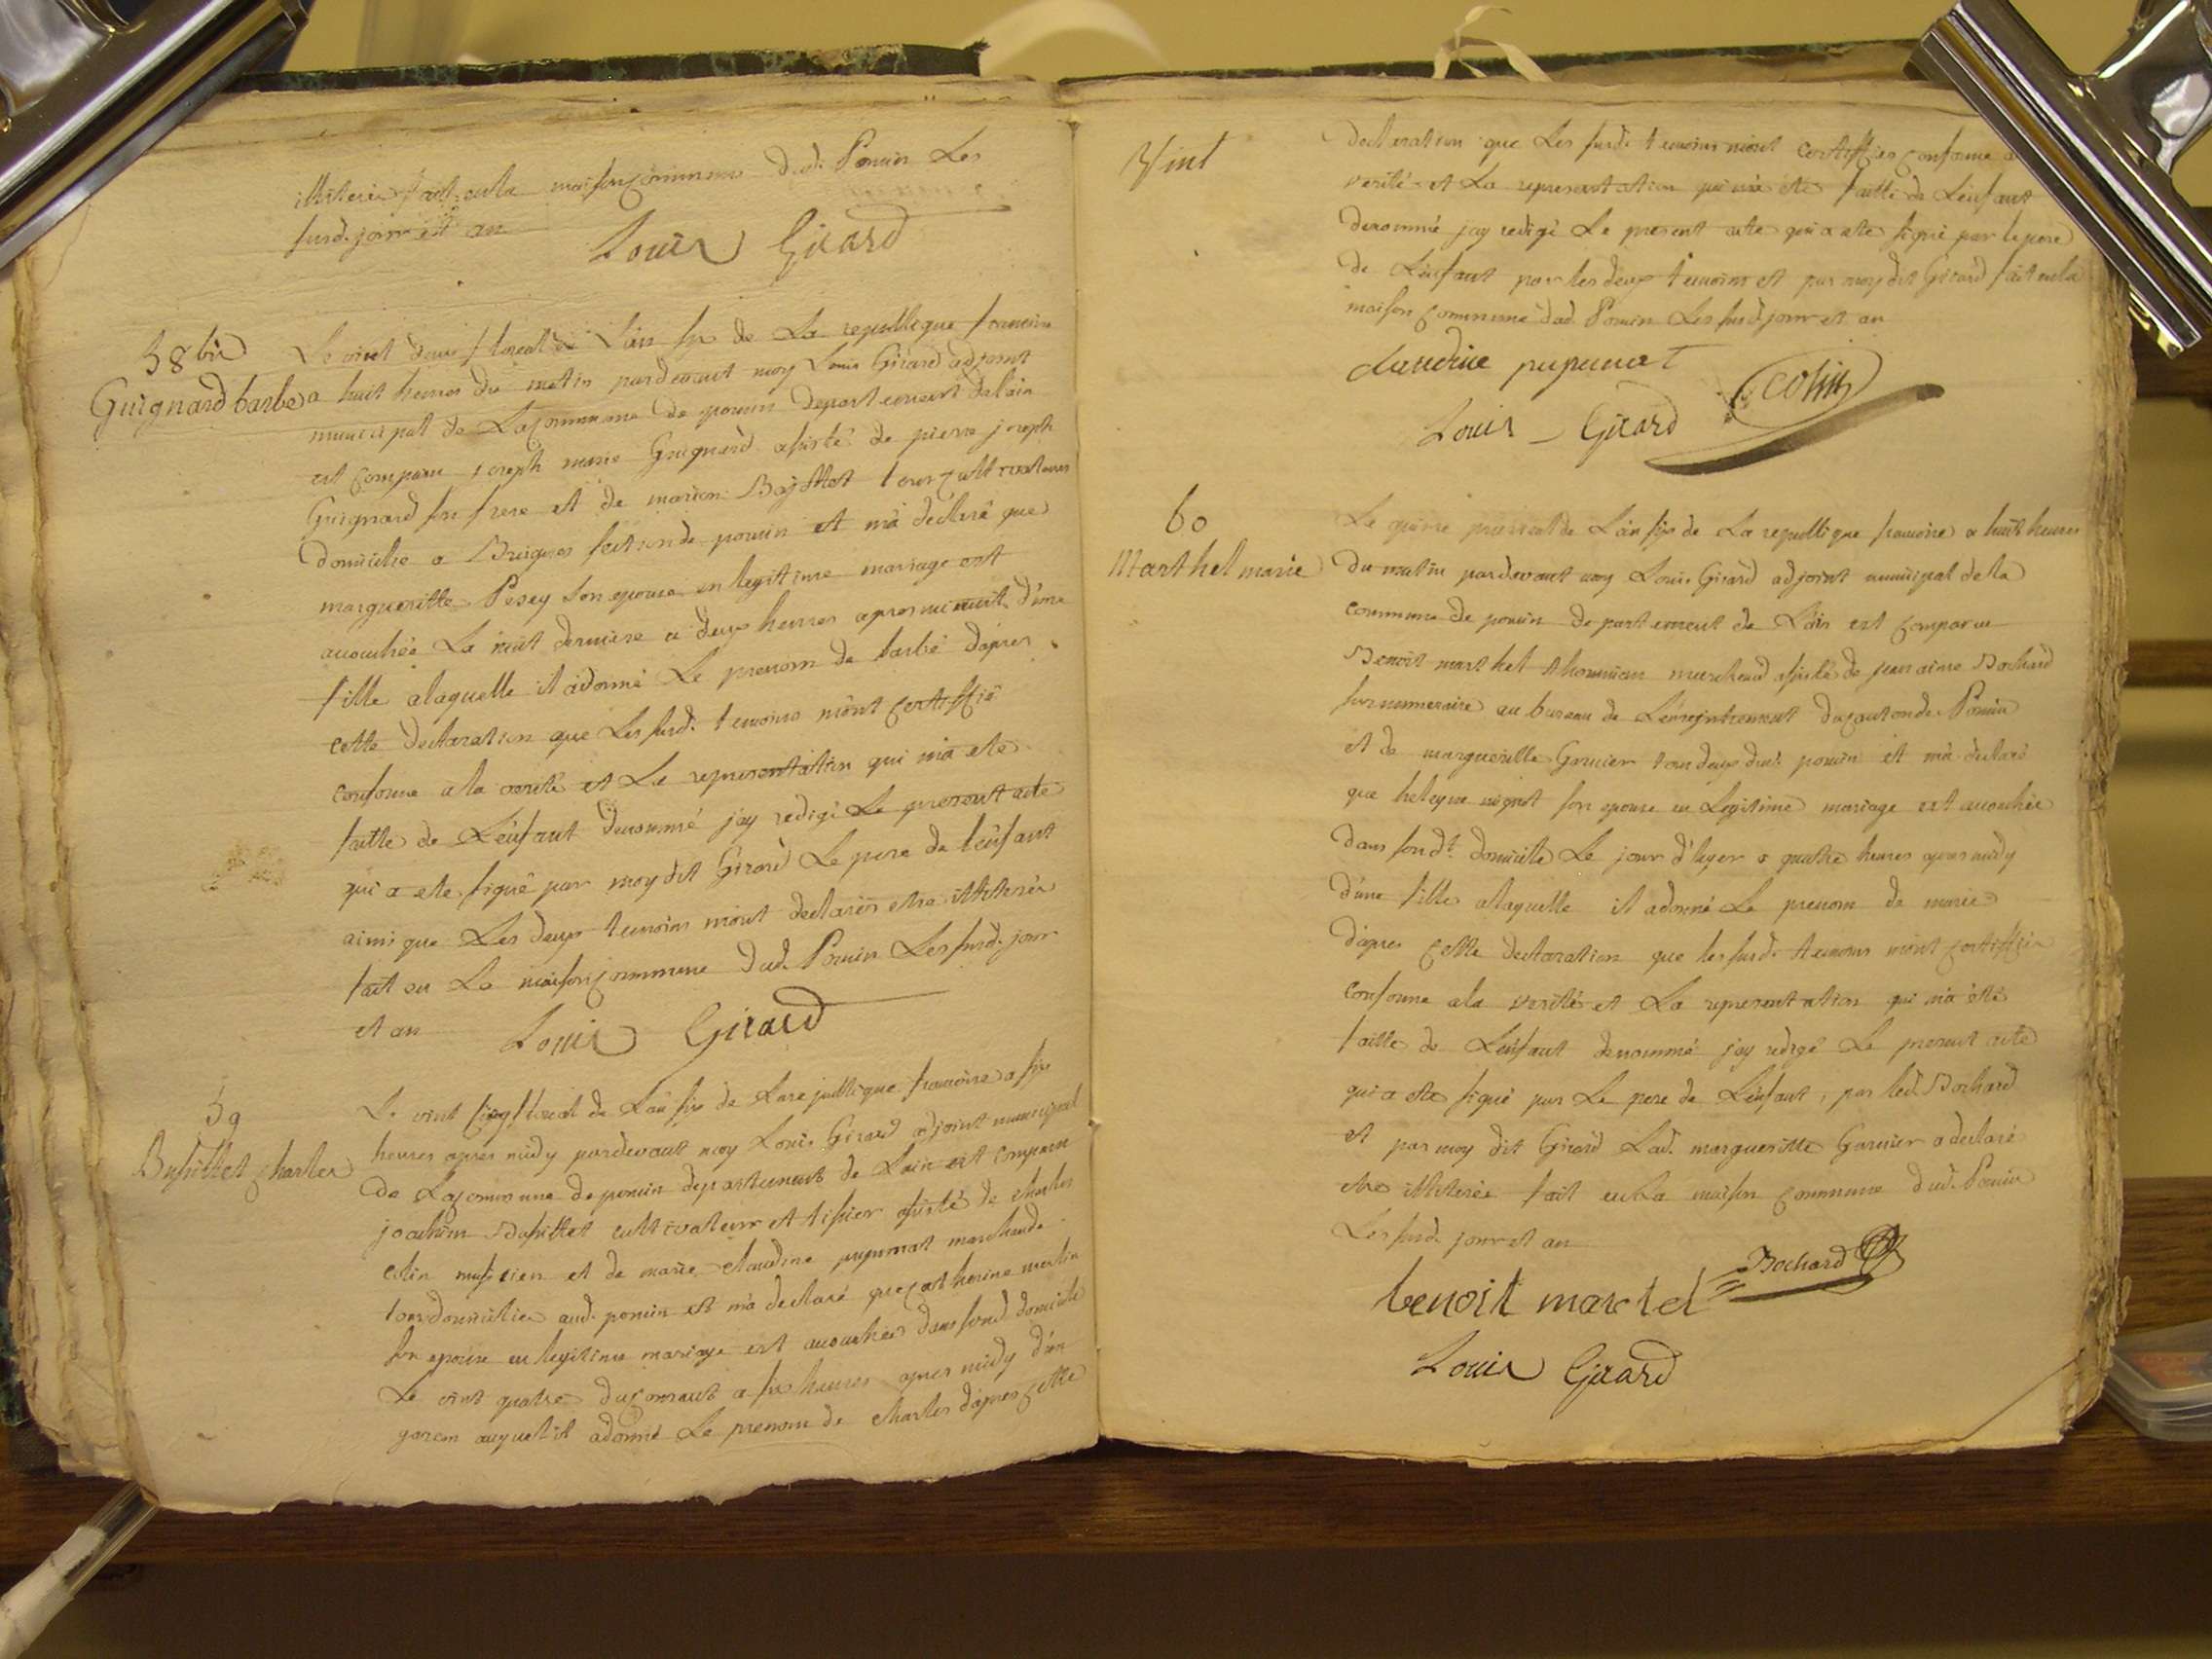 illiterée fait en la maison commune dud. Poncin Les
susd. jour et an
Louis Girard
58 bis
Guignard barbe
Le vint deux floreal de L'an six de La republique francoise
a huit heures du matin pardevant moy Louis Girard adjoint
municipal de La commune de poncin departement de lain
est comparu joseph marie Guignard assisté de pierre joseph
Guignard son frere et de marian tous cultivateurs
domicilie a section de poncin et m'a declaré que
margueritte Pesey son epouse en legitime mariage est
accouchée La nuit derniere a deux heures apres minuit d'une
fille a laquelle il a donné Le prenom de barbe d'apres
cette declaration que Les susd. temoins m'ont certiffié
conforme a la verité et La representation qui m'a ete
faitte de L'enfant denommé j'ay redigé Le present acte
qui a ete signé par moy dit Girard Le pere de l'enfant
ainsi que Les deux temoins m'ont declarés etre illiterés
fait en La maison commune dud. Poncin Les susd. jour
et an
Louis Girard
59
Charles
Le vint cinq floreal de L'an six de La republique francoise a six
heures apres midy pardevant moy Louis Girard adjoint municipal
de La commune de poncin departement de Lain est comparu
joachim cultivateur et tissier assisté de charles
colin musicien et de marie claudine pupunat marchande
tous domicilies aud. poncin et m'a declaré que catherine martin
son epouse en legitime mariage est accouchée dans sond. domicile
Le vint quatre du courant a six heures apres midy d'un
garcon auquel il a donné Le prenom de charles d'apres cette
Vint
declaration que Les susd. temoins m'ont certiffiés conforme a
verité et La representation qui m'a ete faitte de L'enfant
denommé j'ay redigé Le present acte qui a ete signé par le pere
de L'enfant par les deux temoins et par moy dit Girard fait en la
maison commune dud. Poncin Les susd. jour et an
claudine pupunat
colin
Louis Girard
60
Marthel marie
Le prairial de L'an six de La republique francoise a huit heures
du matin pardevant moy Louis Girard adjoint municipal de la
commune de poncin departement de L'ain est comparu
Benoit marthel marchand assisté de jean aime Bochard
surnumeraire au bureau de L'enregistrement du canton de Poncin
et de margueritte Garnier tous deux dud. poncin et m'a declaré
que son epouse en Legitime mariage est accouchée
dans sond.t domicille Le jour d'hyer a quatre heures apres midy
d'une fille a laquelle il a donné Le prenom de marie
d'apres cette declaration que les susd. temoins m'ont certiffié
conforme a la verité et La representation qui m'a été
faitte de L'enfant denommé j'ay redigé Le present acte
qui a ete signé par Le pere de L'enfant, par led. Bochard
et par moy dit Girard Lad. margueritte Garnier a declaré
etre illiterée fait en La maison commune dud. Poncin
Les susd. jour et an
Bochard
benoit martel
Louis Girard